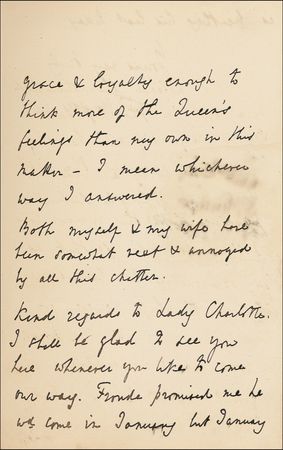 grace & loyalty enough to
think more of the Queen's
feelings than my own in this
matter – I mean whichever
way I answered.
Both myself & my wife have
been somewhat vext & annoyed
by all this chatter.
Kind regards to Lady Charlotte.
I shall be glad to see you
here whenever you like to come
our way. Froude promised me he
wd come in January but January